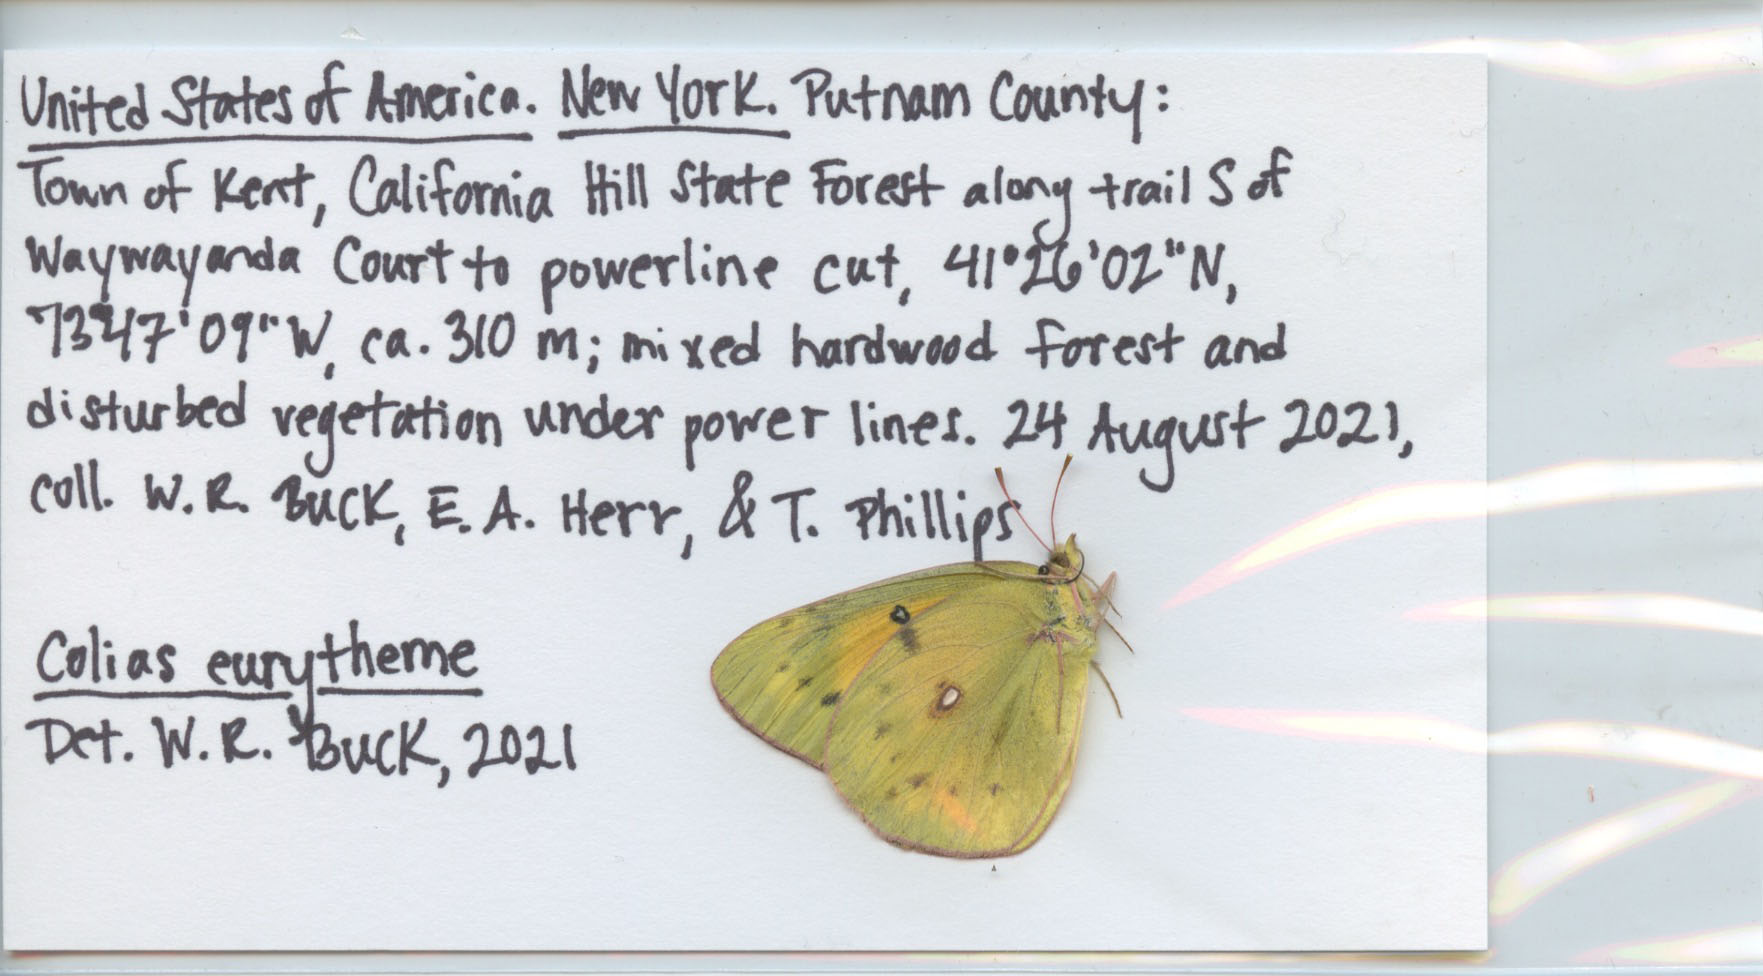 United States of America. New York. Putnam County:
Town of Kent, California Hill State Forest along trail S of
Waywayanda Court to powerline cut, 41°26'02"N,
73°47'09"W, ca. 310 m; mixed hardwood forest and
disturbed vegetation under power lines. 24 August 2021,
coll. W. R. Buck, E. A. Herr, & T. Phillips
Colias eurytheme
Det. W. R. Buck, 2021